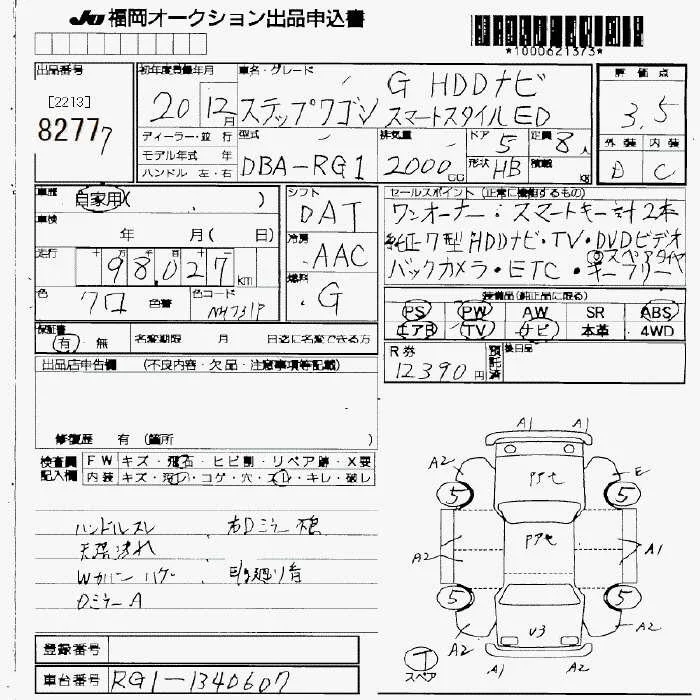 JU 福岡オークション出品申込書
*1000621373*
出品番号
[2213]
82777
初年度登録年月
20 12月
車名・グレード
G HDDナビ
ステップワゴン スマートスタイルED
評価点
3.5
外装 内装
D C
ディーラー・並行
モデル年式 年
ハンドル 左・右
型式
DBA-RG1
排気量
2000 CC
ドア 5
形状 HB
定員 8人
積載 kg
車歴
自家用( )
車検
年 月(日)
走行
十 万 千 百 十
98,027 km
色
クロ 色番
色コード
NH731P
シフト
DAT
冷房
AAC
燃料
G
セールスポイント(正常に機能するもの)
ワンオーナー・スマートキー計2本
純正7型HDDナビ・TV・DVDビデオ
スペアタイヤ
バックカメラ・ETC・キーフリー
装備品(純正品に限る)
PS PW AW SR ABS
エアB TV ナビ 本革 4WD
保証書
有・無
名変期限 月 日迄に名変できる方
R券
12390円
預託済
後日品
出品店申告欄 (不良内容・欠品・注意事項等記載)
修復歴 有(箇所 )
検査員記入欄
FW キズ・飛石・ヒビ割・リペア跡・X要
内装 キズ・汚レ・コゲ・穴・スレ・キレ・破レ
ハンドルスレ 右Dミラー
天張汚れ
Wカバーハゲ
Dミラー A
登録番号
車台番号 RG1-1340607
A1 A1
A2 E
5 5
A2 A1
5 5
A2 A2
U3
T
スペア
A1 A2